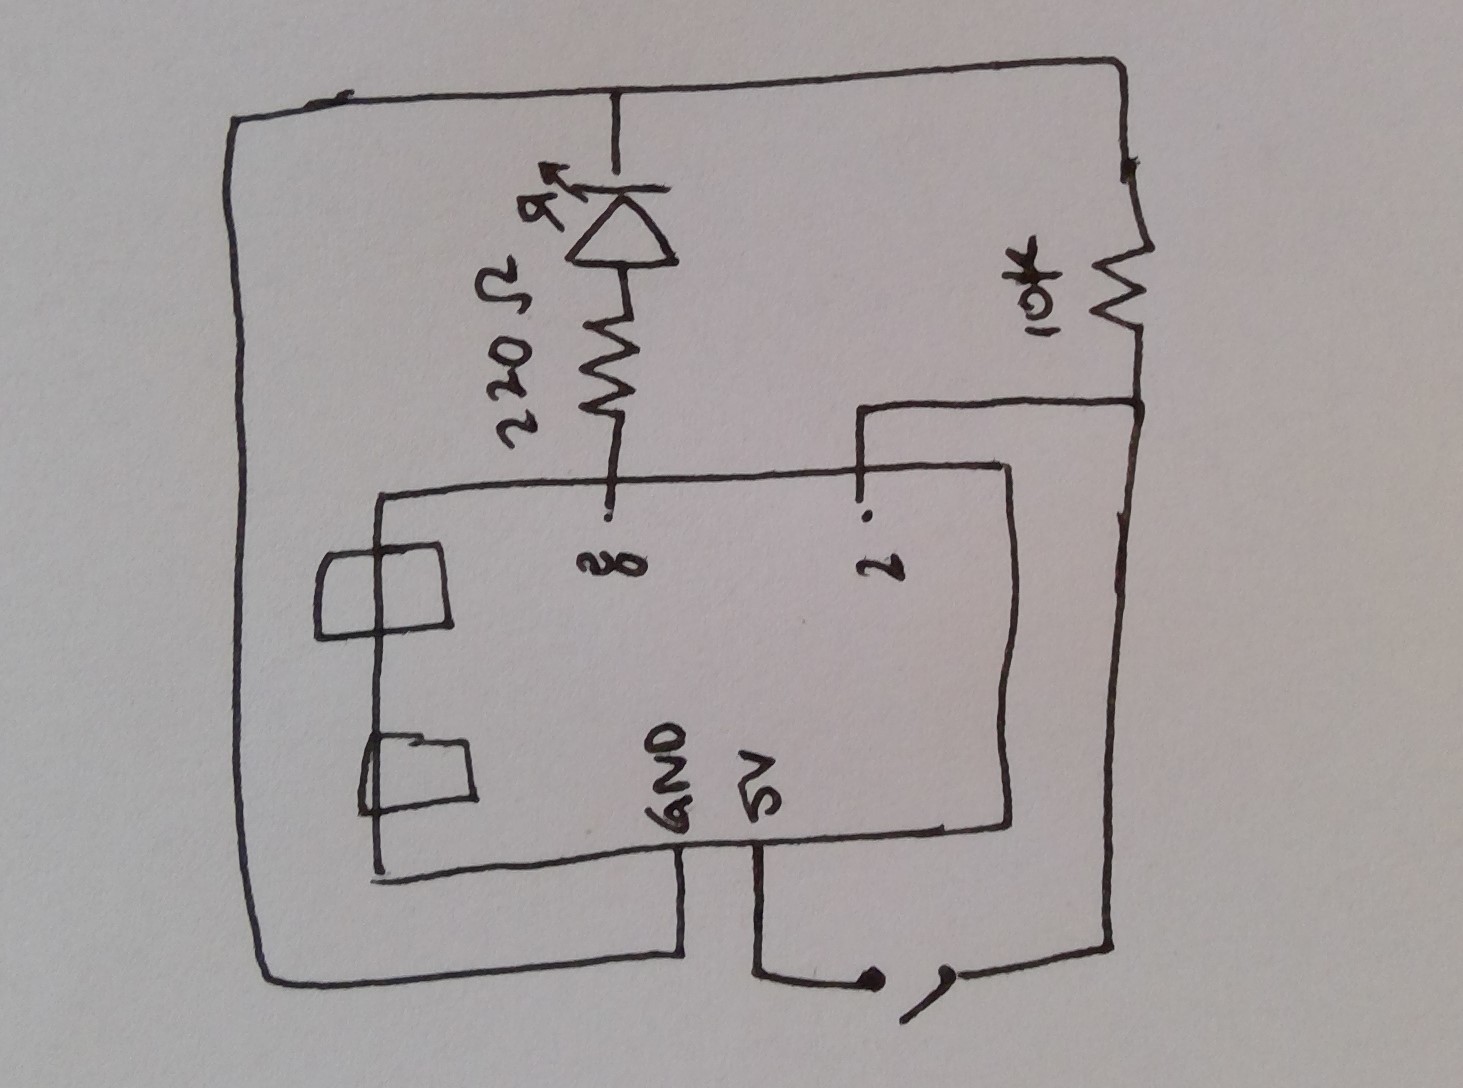 220 Ω
10K
8
2
GND
5V